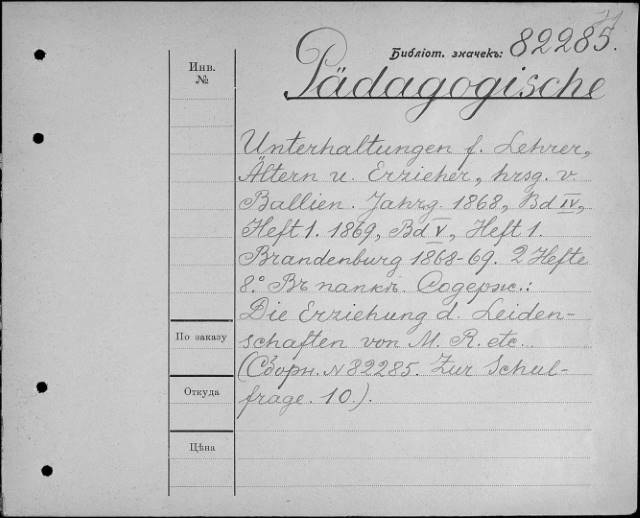 Библіот. значекъ: 82285.
Инв.
№
Pädagogische
Unterhaltungen f. Lehrer,
Ältern u. Erzieher, hrsg. v.
Ballien. Jahrg. 1868, Bd IV,
Heft 1. 1869, Bd V, Heft 1.
Brandenburg 1868-69. 2 Hefte
8.° Въ папкѣ. Содерж.:
Die Erziehung d. Leiden-
schaften von M. R. etc.
(Сборн. N 82285. Zur Schul-
frage. 10.).
По заказу
Откуда
Цѣна